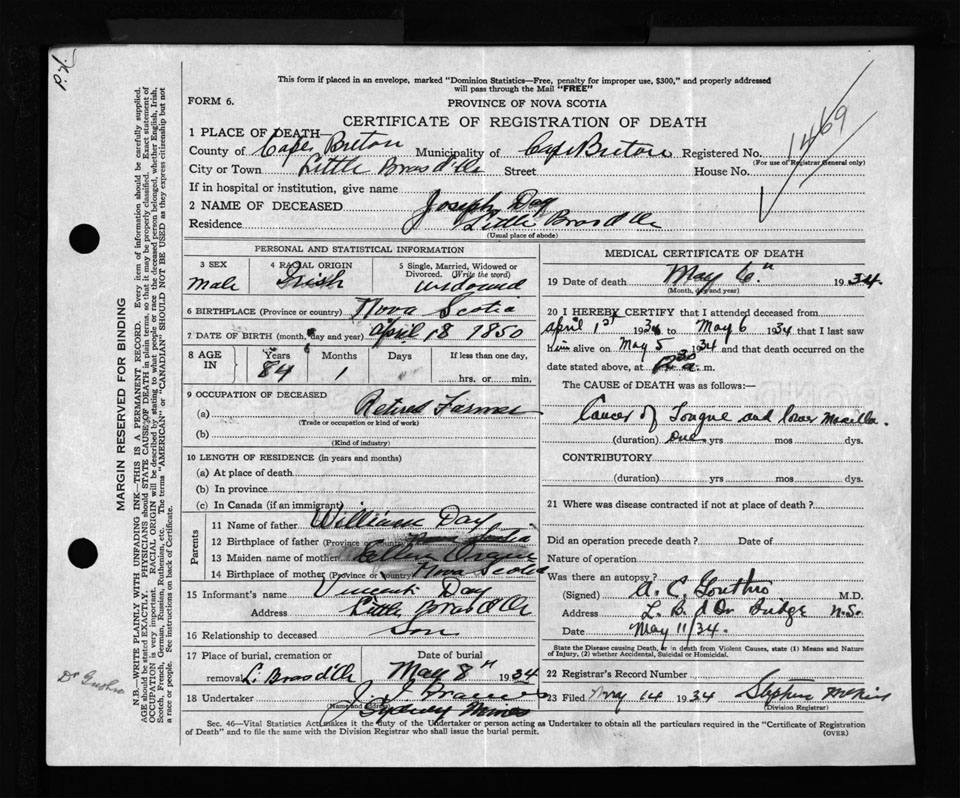 This form if placed in an envelope, marked "Dominion Statistics—Free, penalty for improper use, $300," and properly addressed
will pass through the Mail "FREE"
FORM 6.
PROVINCE OF NOVA SCOTIA
CERTIFICATE OF REGISTRATION OF DEATH
1469
1 PLACE OF DEATH
County of Cape Breton Municipality of Cape Breton Registered No.
(For use of Registrar General only)
City or Town Little Bras d'Or Street House No.
If in hospital or institution, give name
2 NAME OF DECEASED Joseph Day
Residence Little Bras d'Or
(Usual place of abode)
PERSONAL AND STATISTICAL INFORMATION
3 SEX male
4 RACIAL ORIGIN Irish
5 Single, Married, Widowed or Divorced. (Write the word) widowed
6 BIRTHPLACE (Province or country) Nova Scotia
7 DATE OF BIRTH (month, day and year) April 18 1850
8 AGE IN Years Months Days If less than one day,
84 1 hrs. or min.
9 OCCUPATION OF DECEASED
(a) Retired Farmer
(Trade or occupation or kind of work)
(b)
(Kind of industry)
10 LENGTH OF RESIDENCE (in years and months)
(a) At place of death
(b) In province
(c) In Canada (if an immigrant)
Parents
11 Name of father William Day
12 Birthplace of father (Province or country) Nova Scotia
13 Maiden name of mother
14 Birthplace of mother (Province or country) Nova Scotia
15 Informant's name Vincent Day
Address Little Bras d'Or
16 Relationship to deceased Son
17 Place of burial, cremation or Date of burial
removal L. Bras d'Or May 8th 1934
18 Undertaker
(Name and address) Sydney Mines
MEDICAL CERTIFICATE OF DEATH
19 Date of death May 6th 1934
(Month, day and year)
20 I HEREBY CERTIFY that I attended deceased from
April 1st 1934 to May 6 1934 that I last saw
him alive on May 5 1934 and that death occurred on the
date stated above, at a. m.
The CAUSE of DEATH was as follows:—
Cancer of Tongue and lower Maxilla.
(duration) One yrs mos dys.
CONTRIBUTORY
(duration) yrs mos dys.
21 Where was disease contracted if not at place of death?
Did an operation precede death? Date of
Nature of operation
Was there an autopsy?
(Signed) A. C. Gouthro M.D.
Address L. B. d'Or Bridge N.S.
Date May 11/34.
State the Disease causing Death, or in death from Violent Causes, state (1) Means and
Nature of Injury, (2) whether Accidental, Suicidal or Homicidal.
22 Registrar's Record Number
23 Filed May 14 1934 Stephen
(Division Registrar)
Sec. 46—Vital Statistics Act, makes it the duty of the Undertaker or person acting as Undertaker to obtain all the particulars required in the "Certificate of Registration
of Death" and to file the same with the Division Registrar who shall issue the burial permit. (OVER)
MARGIN RESERVED FOR BINDING
N.B.—WRITE PLAINLY WITH UNFADING INK—THIS IS A PERMANENT RECORD. Every item of information should be carefully supplied.
AGE should be stated EXACTLY. PHYSICIANS should STATE CAUSE OF DEATH in plain terms, so that it may be properly classified. Exact statement of
OCCUPATION is very important. RACIAL ORIGIN will be described by stating to what people or race the deceased person belonged, whether English, Irish,
Scotch, French, German, Russian, Ruthenian, etc. The terms "AMERICAN" or "CANADIAN" SHOULD NOT BE USED as they express citizenship but not
a race or people. See instructions on back of Certificate.